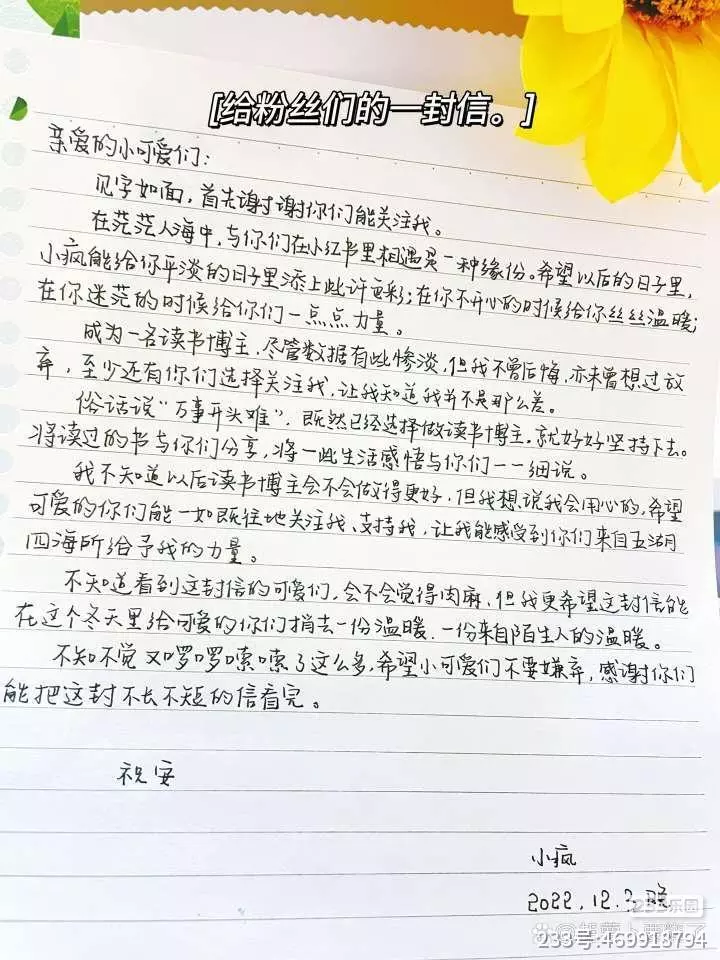 [给粉丝们的一封信。]
亲爱的小可爱们:
见字如面,首先谢谢你们能关注我。
在茫茫人海中,与你们在小红书里相遇是一种缘份。希望以后的日子里,
小疯能给你平淡的日子里添上些许色彩;在你不开心的时候给你丝丝温暖;
在你迷茫的时候给你们一点点力量。
成为一名读书博主,尽管数据有些惨淡,但我不曾后悔,亦未曾想过放
弃,至少还有你们选择关注我,让我知道我并不是那么差。
俗话说“万事开头难”,既然已经选择做读书博主,就好好坚持下去。
将读过的书与你们分享,将一些生活感悟与你们一一细说。
我不知道以后读书博主会不会做得更好,但我想说我会用心的,希望
可爱的你们能一如既往地关注我、支持我,让我能感受到你们来自五湖
四海所给予我的力量。
不知道看到这封信的可爱们,会不会觉得肉麻,但我更希望这封信能
在这个冬天里给可爱的你们捎去一份温暖,一份来自陌生人的温暖。
不知不觉又啰啰嗦嗦了这么多,希望小可爱们不要嫌弃,感谢你们
能把这封不长不短的信看完。
祝安
小疯
2022.12.3 晚
233乐园
233号:469918794